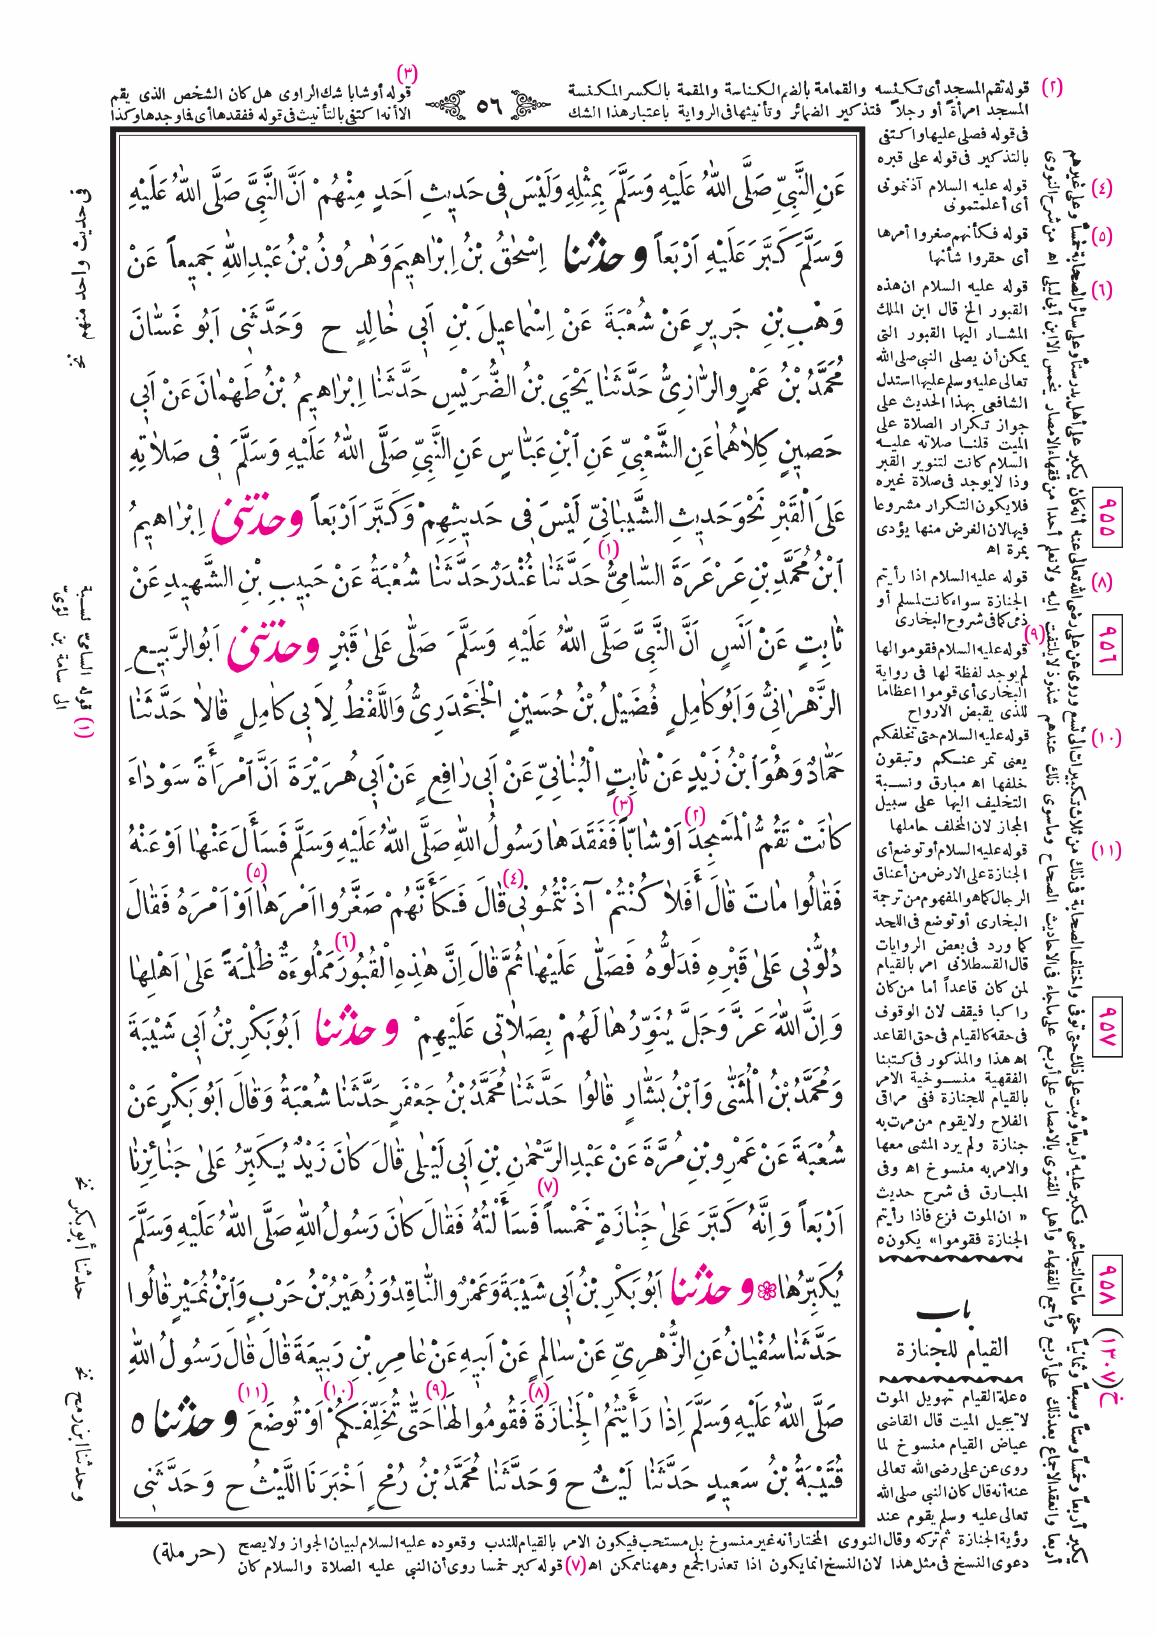 (٢) قوله تقم المسجد أى تكنسه والقمامة بالضم الكناسة والمقمة بالكسر المكنسة
المسجد امرأة أو رجلاً فتذكير الضمائر وتأنيثها فى الرواية باعتبار هذا الشك
٥٦
(٣)
قوله أو شابا شك الراوى هل كان الشخص الذى يقم
الا أنه اكتفى بالتأنيث فى قوله ففقدها أى فما وجدها وكذا
عَنِ النَّبِيِّ صَلَّى اللهُ عَلَيْهِ وَسَلَّمَ بِمِثْلِهِ وَلَيْسَ فِى حَدِيثِ اَحَدٍ مِنْهُمْ اَنَّ النَّبِيَّ صَلَّى اللهُ عَلَيْهِ
وَسَلَّمَ كَبَّرَ عَلَيْهِ اَرْبَعاً وحدثنا اِسْحٰقُ بْنُ اِبْرَاهِيمَ وَهٰرُونُ بْنُ عَبْدِاللهِ جَمِيعاً عَنْ
وَهْبِ بْنِ جَرِيرٍ عَنْ شُعْبَةَ عَنْ اِسْمَاعِيلَ بْنِ اَبِى خَالِدٍ ح وَحَدَّثَنِى اَبُو غَسَّانَ
مُحَمَّدُ بْنُ عَمْرٍو الرَّازِىُّ حَدَّثَنَا يَحْيَى بْنُ الضُّرَيْسِ حَدَّثَنَا اِبْرَاهِيمُ بْنُ طَهْمَانَ عَنْ اَبِى
حَصِينٍ كِلَاهُمَا عَنِ الشَّعْبِيِّ عَنِ ابْنِ عَبَّاسٍ عَنِ النَّبِيِّ صَلَّى اللهُ عَلَيْهِ وَسَلَّمَ فِى صَلَاتِهِ
عَلَى الْقَبْرِ نَحْوَ حَدِيثِ الشَّيْبَانِيِّ لَيْسَ فِى حَدِيثِهِمْ وَكَبَّرَ اَرْبَعاً وحدثنى اِبْرَاهِيمُ
ابْنُ مُحَمَّدِ بْنِ عَرْعَرَةَ السَّامِىُّ (١) حَدَّثَنَا غُنْدَرٌ حَدَّثَنَا شُعْبَةُ عَنْ حَبِيبِ بْنِ الشَّهِيدِ عَنْ
ثَابِتٍ عَنْ اَنَسٍ اَنَّ النَّبِيَّ صَلَّى اللهُ عَلَيْهِ وَسَلَّمَ صَلَّى عَلَى قَبْرٍ وحدثنى اَبُو الرَّبِيعِ
الزَّهْرَانِىُّ وَاَبُو كَامِلٍ فُضَيْلُ بْنُ حُسَيْنٍ الْجَحْدَرِىُّ وَاللَّفْظُ لِاَبِى كَامِلٍ قَالَا حَدَّثَنَا
حَمَّادٌ وَهُوَ ابْنُ زَيْدٍ عَنْ ثَابِتٍ الْبُنَانِيِّ عَنْ اَبِى رَافِعٍ عَنْ اَبِى هُرَيْرَةَ اَنَّ امْرَأَةً سَوْدَاءَ
كَانَتْ تَقُمُّ الْمَسْجِدَ (٢) اَوْ شَابًّا (٣) فَفَقَدَهَا رَسُولُ اللهِ صَلَّى اللهُ عَلَيْهِ وَسَلَّمَ فَسَأَلَ عَنْهَا اَوْ عَنْهُ
فَقَالُوا مَاتَ قَالَ أَفَلَا كُنْتُمْ آذَنْتُمُونِى (٤) قَالَ فَكَأَنَّهُمْ صَغَّرُوا اَمْرَهَا (٥) اَوْ اَمْرَهُ فَقَالَ
دُلُّونِى عَلَى قَبْرِهِ فَدَلُّوهُ فَصَلَّى عَلَيْهَا ثُمَّ قَالَ اِنَّ هٰذِهِ الْقُبُورَ (٦) مَمْلُوءَةٌ ظُلْمَةً عَلَى اَهْلِهَا
وَاِنَّ اللهَ عَزَّ وَجَلَّ يُنَوِّرُهَا لَهُمْ بِصَلَاتِى عَلَيْهِمْ وحدثنا اَبُو بَكْرِ بْنُ اَبِى شَيْبَةَ
وَمُحَمَّدُ بْنُ الْمُثَنَّى وَابْنُ بَشَّارٍ قَالُوا حَدَّثَنَا مُحَمَّدُ بْنُ جَعْفَرٍ حَدَّثَنَا شُعْبَةُ وَقَالَ اَبُو بَكْرٍ عَنْ
شُعْبَةَ عَنْ عَمْرِو بْنِ مُرَّةَ عَنْ عَبْدِ الرَّحْمٰنِ بْنِ اَبِى لَيْلَى قَالَ كَانَ زَيْدٌ يُكَبِّرُ عَلَى جَنَائِزِنَا
اَرْبَعاً وَاِنَّهُ كَبَّرَ عَلَى جَنَازَةٍ خَمْساً (٧) فَسَأَلْتُهُ فَقَالَ كَانَ رَسُولُ اللهِ صَلَّى اللهُ عَلَيْهِ وَسَلَّمَ
يُكَبِّرُهَا وحدثنا اَبُو بَكْرِ بْنُ اَبِى شَيْبَةَ وَعَمْرٌو النَّاقِدُ وَزُهَيْرُ بْنُ حَرْبٍ وَابْنُ نُمَيْرٍ قَالُوا
حَدَّثَنَا سُفْيَانُ عَنِ الزُّهْرِىِّ عَنْ سَالِمٍ عَنْ اَبِيهِ عَنْ عَامِرِ بْنِ رَبِيعَةَ قَالَ قَالَ رَسُولُ اللهِ
صَلَّى اللهُ عَلَيْهِ وَسَلَّمَ اِذَا رَأَيْتُمُ الْجَنَازَةَ (٨) فَقُومُوا لَهَا (٩) حَتَّى تُخَلِّفَكُمْ (١٠) اَوْ تُوضَعَ (١١) وحدثنا ٥
قُتَيْبَةُ بْنُ سَعِيدٍ حَدَّثَنَا لَيْثٌ ح وَحَدَّثَنَا مُحَمَّدُ بْنُ رُمْحٍ اَخْبَرَنَا اللَّيْثُ ح وَحَدَّثَنِى
فى قوله فصلى عليها واكتفى
بالتذكير فى قوله على قبره
(٤) قوله عليه السلام آذنتمونى
أى أعلمتمونى
(٥) قوله فكأنهم صغروا أمرها
أى حقروا شأنها
(٦) قوله عليه السلام ان هذه
القبور الخ قال ابن الملك
المشار اليها القبور التى
يمكن أن يصلى النبى صلى الله
تعالى عليه وسلم عليها استدل
الشافعى بهذا الحديث على
جواز تكرار الصلاة على
الميت قلنا صلاته عليه
السلام كانت لتنوير القبر
وذا لا يوجد فى صلاة غيره
فلا يكون التكرار مشروعا
فيها لان الفرض منها يؤدى
بمرة اه
(٨) قوله عليه السلام اذا رأيتم
الجنازة سواء كانت لمسلم أو
ذمى كما فى شروح البخارى
(٩) قوله عليه السلام فقوموا لها
لم يوجد لفظة لها فى رواية
البخارى أى قوموا اعظاما
للذى يقبض الارواح
(١٠) قوله عليه السلام حتى تخلفكم
يعنى تمر عنكم وتبقون
خلفها اه مبارق ونسبة
التخليف اليها على سبيل
المجاز لان المخلف حاملها
(١١) قوله عليه السلام أو توضع أى
الجنازة على الارض من أعناق
الرجال كما هو المفهوم من ترجمة
البخارى أو توضع فى اللحد
كما ورد فى بعض الروايات
قال القسطلانى امر بالقيام
لمن كان قاعداً أما من كان
راكبا فيقف لان الوقوف
فى حقه كالقيام فى حق القاعد
اه هذا والمذكور فى كتبنا
الفقهية منسوخية الامر
بالقيام للجنازة ففى مراقى
الفلاح ولا يقوم من مرت به
جنازة ولم يرد المشى معها
والامر به منسوخ اه وفى
المبارق فى شرح حديث
« ان الموت فزع فاذا رأيتم
الجنازة فقوموا» يكون ٥
باب
القيام للجنازة
٥ علة القيام تهويل الموت
لا تبجيل الميت قال القاضى
عياض القيام منسوخ لما
روى عن على رضى الله تعالى
عنه أنه قال كان النبى صلى الله
تعالى عليه وسلم يقوم عند
رؤية الجنازة ثم تركه وقال النووى المختار أنه غير منسوخ بل مستحب فيكون الامر بالقيام للندب وقعوده عليه السلام لبيان الجواز ولا يصح
دعوى النسخ فى مثل هذا لان النسخ انما يكون اذا تعذر الجمع وههنا ممكن اه (٧) قوله كبر خمسا روى أن النبى عليه الصلاة والسلام كان
(حرملة)
يكبر أربعاً وخمساً وستاً وسبعاً وثمانياً حتى مات النجاشى فكبر عليه أربعاً وثبت على ذلك حتى توفى واختلف الصحابة فى ذلك من ثلاث تكبيرات الى تسع وروى عن على رضى الله تعالى عنه أنه كان يكبر على أهل بدر ستاً وعلى سائر الصحابة خمساً وعلى غيرهم
أربعاً وانعقد الاجماع بعد ذلك على أربع وأجمع الفقهاء وأهل الفتوى بالامصار على أربع على ما جاء فى الاحاديث الصحاح وما سوى ذلك عندهم شذوذ لا يلتفت اليه ولا نعلم أحدا من فقهاء الامصار يخمس الا ابن أبى ليلى اه من شرح النووى
٩٥٥
٩٥٦
٩٥٧
٩٥٨
خ (١٣٠٧)
فى حديث واحد منهم نخ
(١) قوله السامى نسبة
الى سامة بن لؤى
حدثنا أبو بكر نخ
وحدثنا ابن رمح نخ